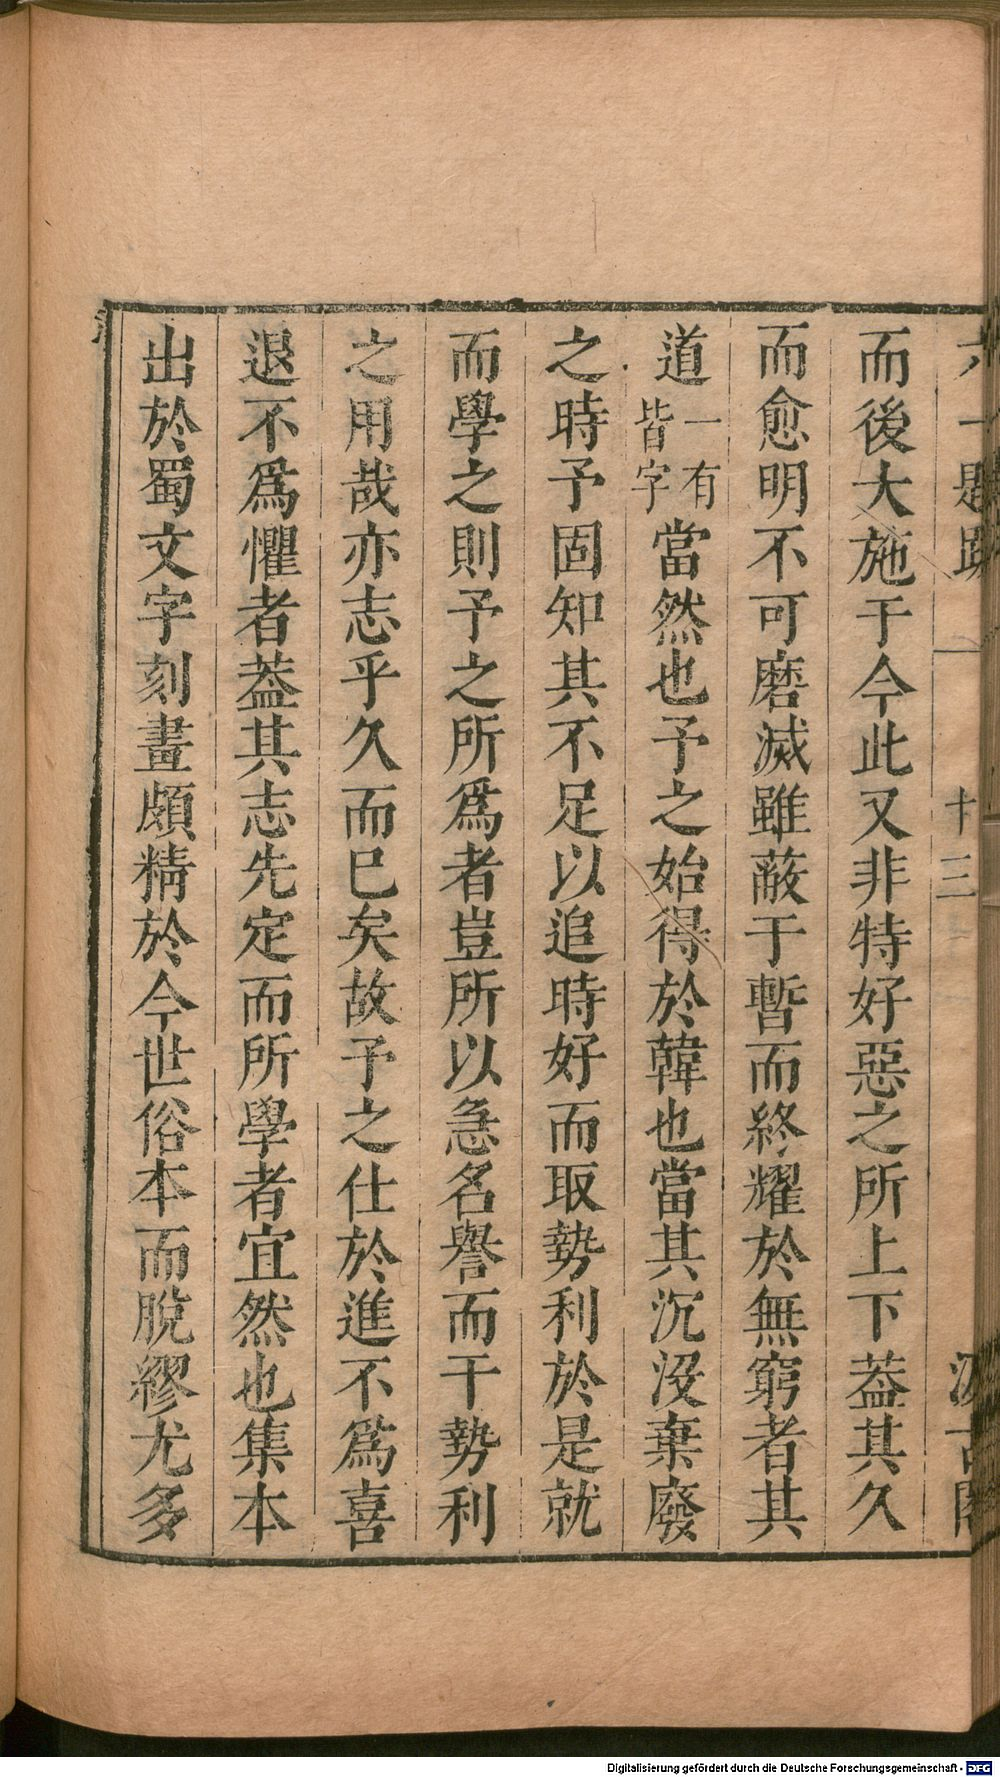 六一題跋 十三 汲古閣
而後大施于今此又非特好惡之所上下葢其久
而愈明不可磨滅雖蔽于暫而終耀於無窮者其
道一有皆字當然也予之始得於韓也當其沉沒棄廢
之時予固知其不足以追時好而取勢利於是就
而學之則予之所爲者豈所以急名譽而干勢利
之用哉亦志乎久而巳矣故予之仕於進不爲喜
退不爲懼者葢其志先定而所學者宜然也集本
出於蜀文字刻畫頗精於今世俗本而脫繆尤多
Digitalisierung gefördert durch die Deutsche Forschungsgemeinschaft - DFG